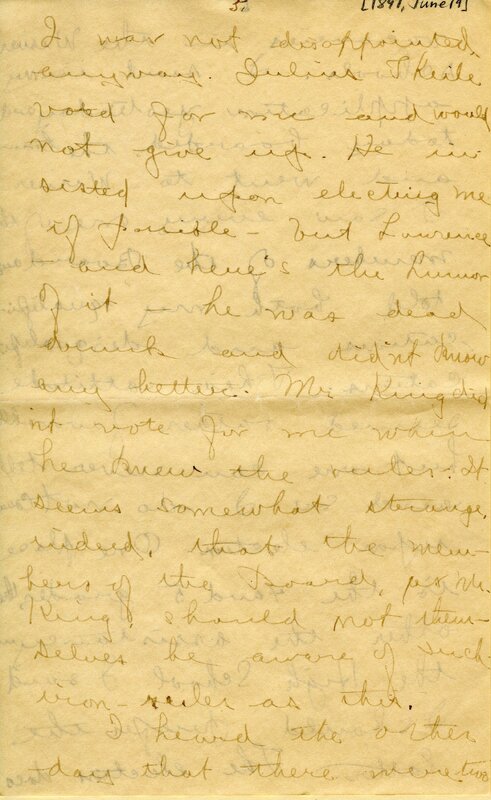 5.
[1891, June 19]
I was not disappointed
anyway. Julius Keile
voted for me and would
not give up. He in-
sisted upon electing me
if possible - but Lawrence
- and here's the humor
of it - he was dead
drunk and didn't know
any better. Mr. King did
n't vote for me when
he knew the rules. It
seems somewhat strange,
indeed, that the mem-
bers of the Board, as Mr.
King, should not them-
selves be aware of such
iron-rules as this.
I heard the other
day that there were two